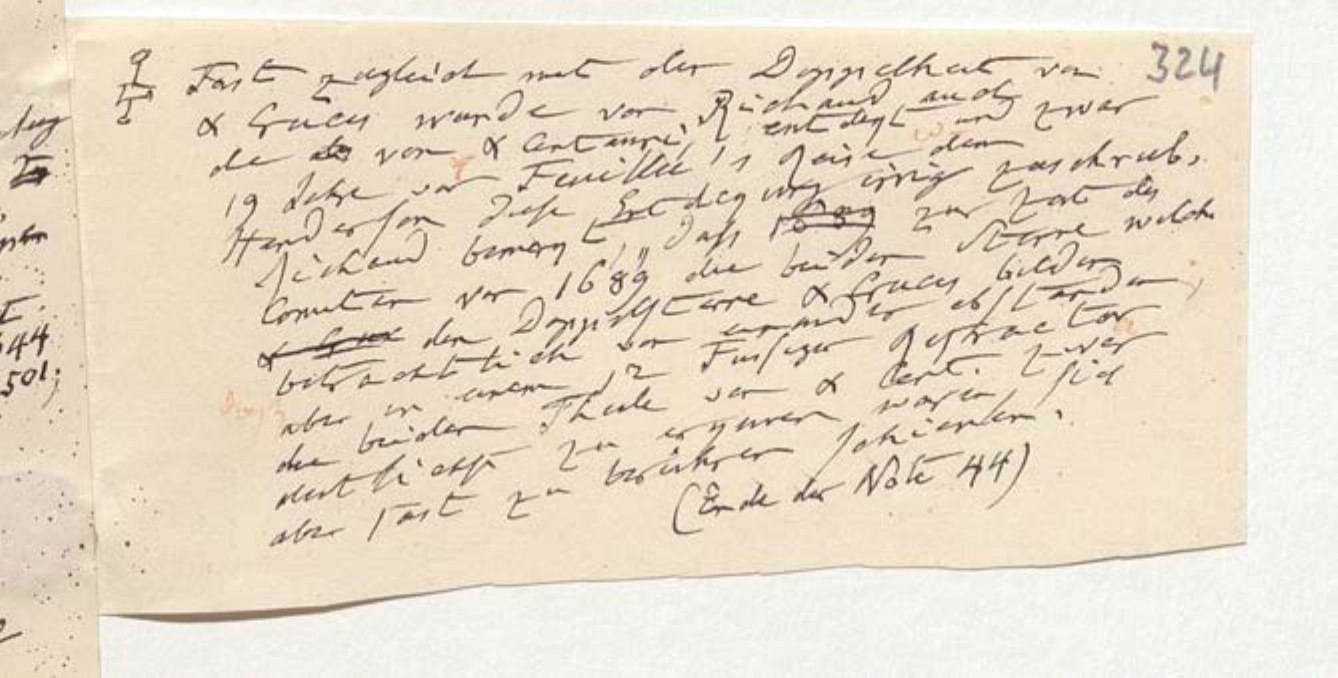 324
Fast zugleich mit der Doppelheit von
α Crucis wurde von Richaud auch
die von α Centauri entdegt und zwar
19 Jahre vor Feuillée's Reise dem
Henderson diese Entdegung irrig zuschrieb.
Richaud bemergt, „daß 1689 zur Zeit des
Cometen von 1689 die beiden Sterne welche
α Crux den Doppelsterne α Crucis bilden
beträchtlich von einander abstanden
aber in einem 12 Fussigen Refractor
die beiden Theile von α Cent. zwar
deutlichst zu erkennen waren sich
aber fast zu berühren schienen.
(Ende der Note 44)
44
501;